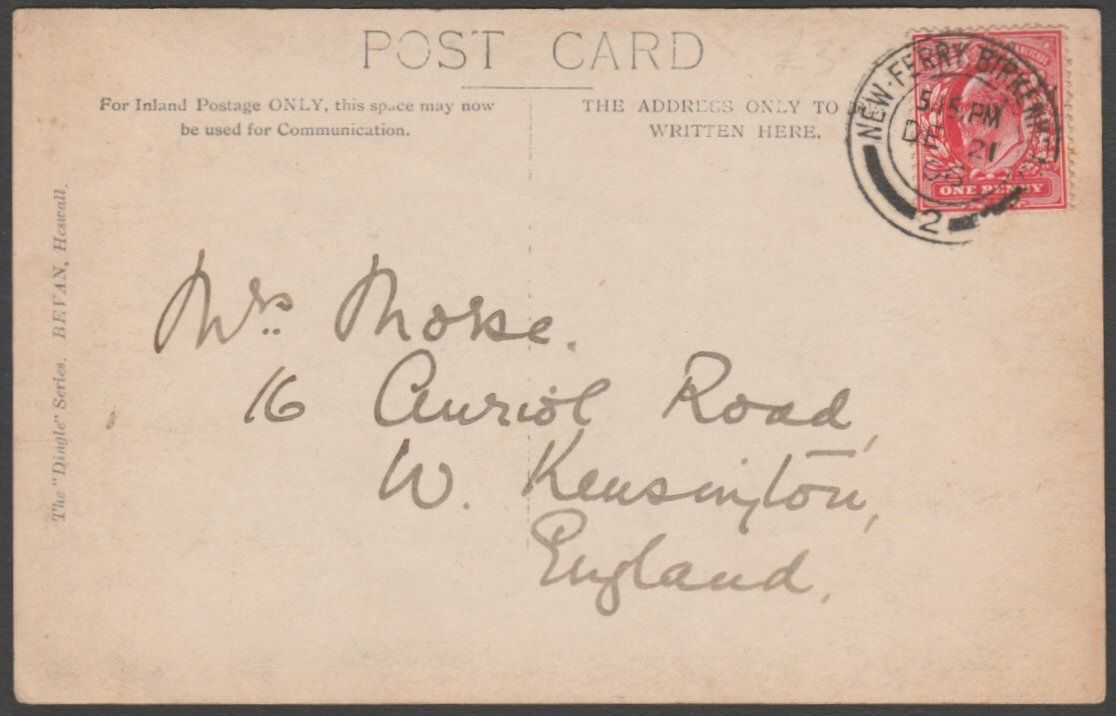 POST CARD
£5
For Inland Postage ONLY, this space may now
be used for Communication.
THE ADDRESS ONLY TO
WRITTEN HERE.
NEW·FERRY BIRKENHE
5.15.PM
DE 21
2
ONE PENNY
The "Dingle" Series. BEVAN, Heswall.
Mrs. Morse.
16 Auriol Road,
W. Kensington,
England.